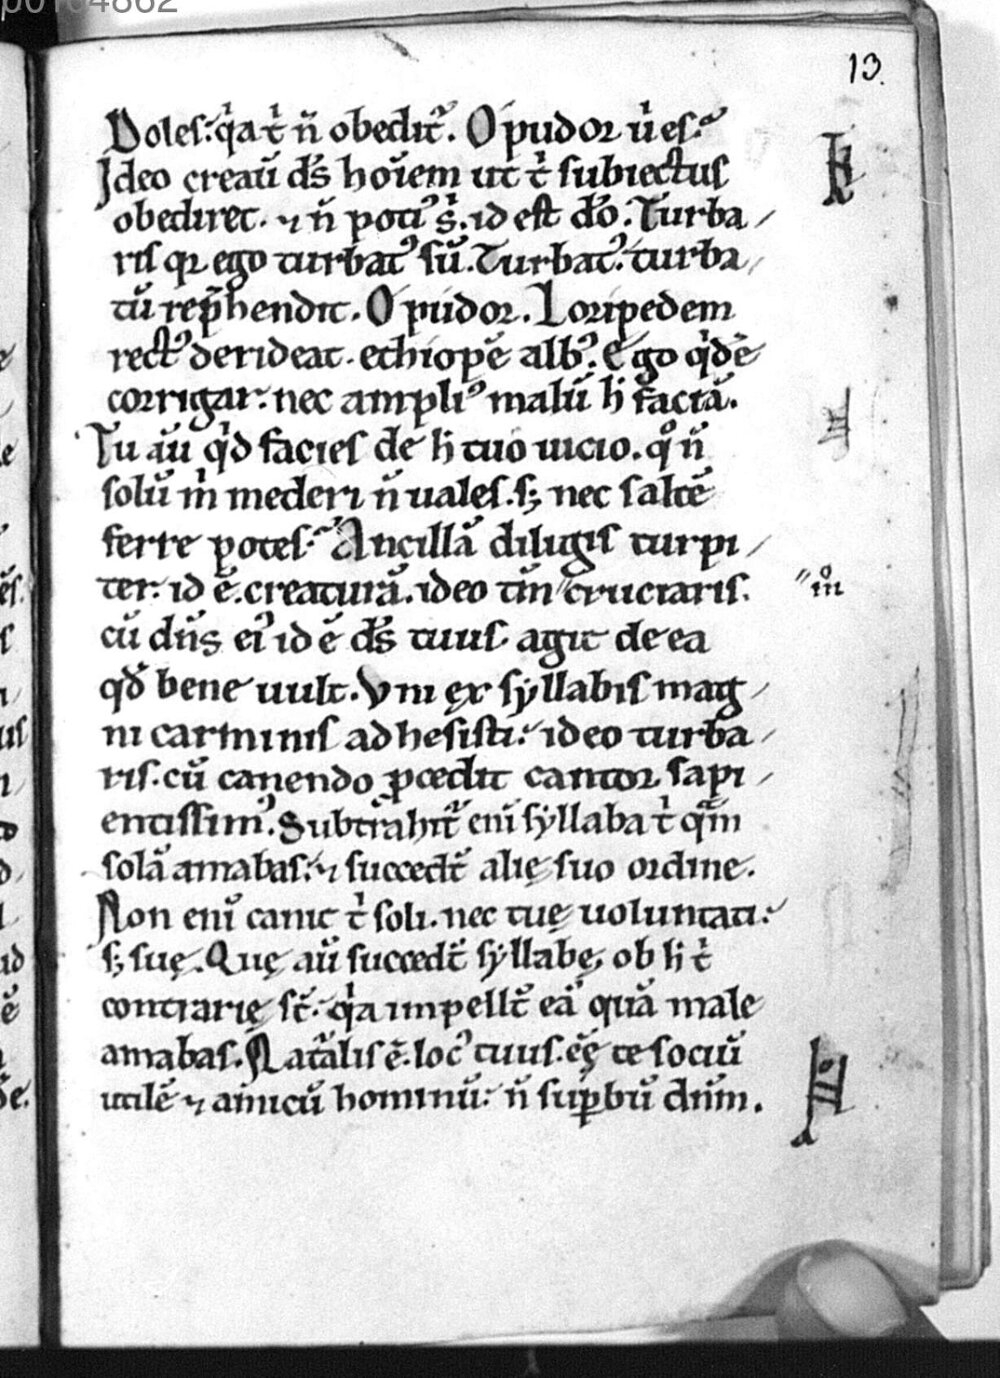 p0164862
13.
Doles. q̇a t̍ n̄ obedit᷑. O pudor ůes.
Ideo creaū d̄s hoīem ut t̍ subiectus
obediret. ⁊ n̄ poti᷒ s̍. id est dō. Turba/
ris qꝛ ego turbat᷒ sū. Turbat᷒. turba/
tū rep̄hendit. O pudor. Loripedem
rect᷒ derideat. ethiopē alb᷒. Ego q̍dē
corrigar. nec ampli᷒ malū h̍ faciā.
Tu aū q̍d facies de h̍ tuo uicio. qͦ n̄
solū m̍ mederi n̄ uales. sꝫ nec saltē
ferre potes. Ancillā diligis turpi/
ter. id ē. creaturā. ideo tm̄ cruciaris.
cū dn̄s ei᷒ id ē d̄s tuus agit de ea
qd̄ bene uult. Vni ex syllabis mag/
ni carminis adhesisti. ideo turba/
ris. cū canendo ꝓcedit cantor sapi/
entissim᷒. Subtrahit᷑ eni syllaba t̍ qᷓm
solā amabas. ⁊ succedt̄ alię suo ordine.
Non enī canit t̍ soli. nec tuę uoluntati.
sꝫ suę. Quę aū succedt̄ syllabę, ob h̍ t̍
contrarię st̄. q̍a impellt̄ eā quā male
amabas. Natᷓlis ē. loc᷒ tuus. eē te sociū
utilē ⁊ amicū hominū. n̄ suꝑbū dn̄m.